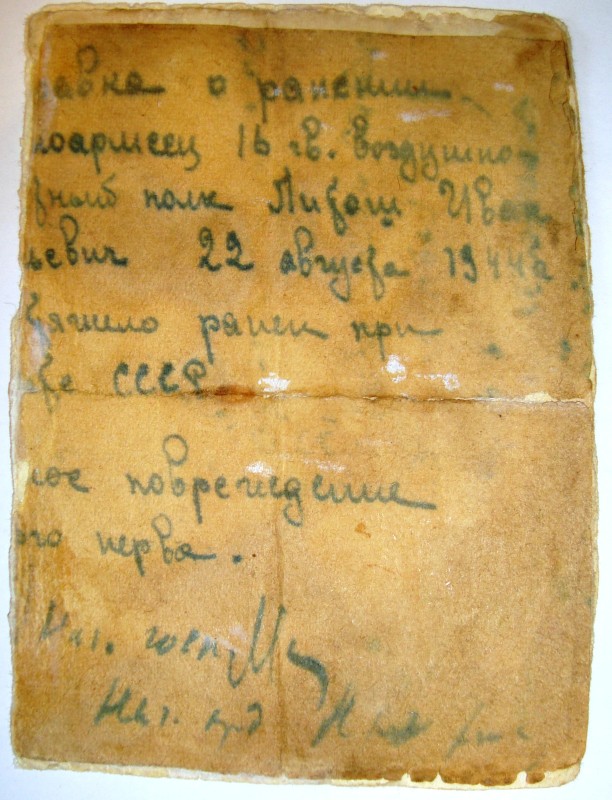 авка о ранении
ноармеец 16 гв. воздушно-
нный полк Лидош Иван
ьевич 22 августа 1944 г.
тяжело ранен при
те СССР
ное повреждение
ого нерва.
Нач. госп.
Нач.